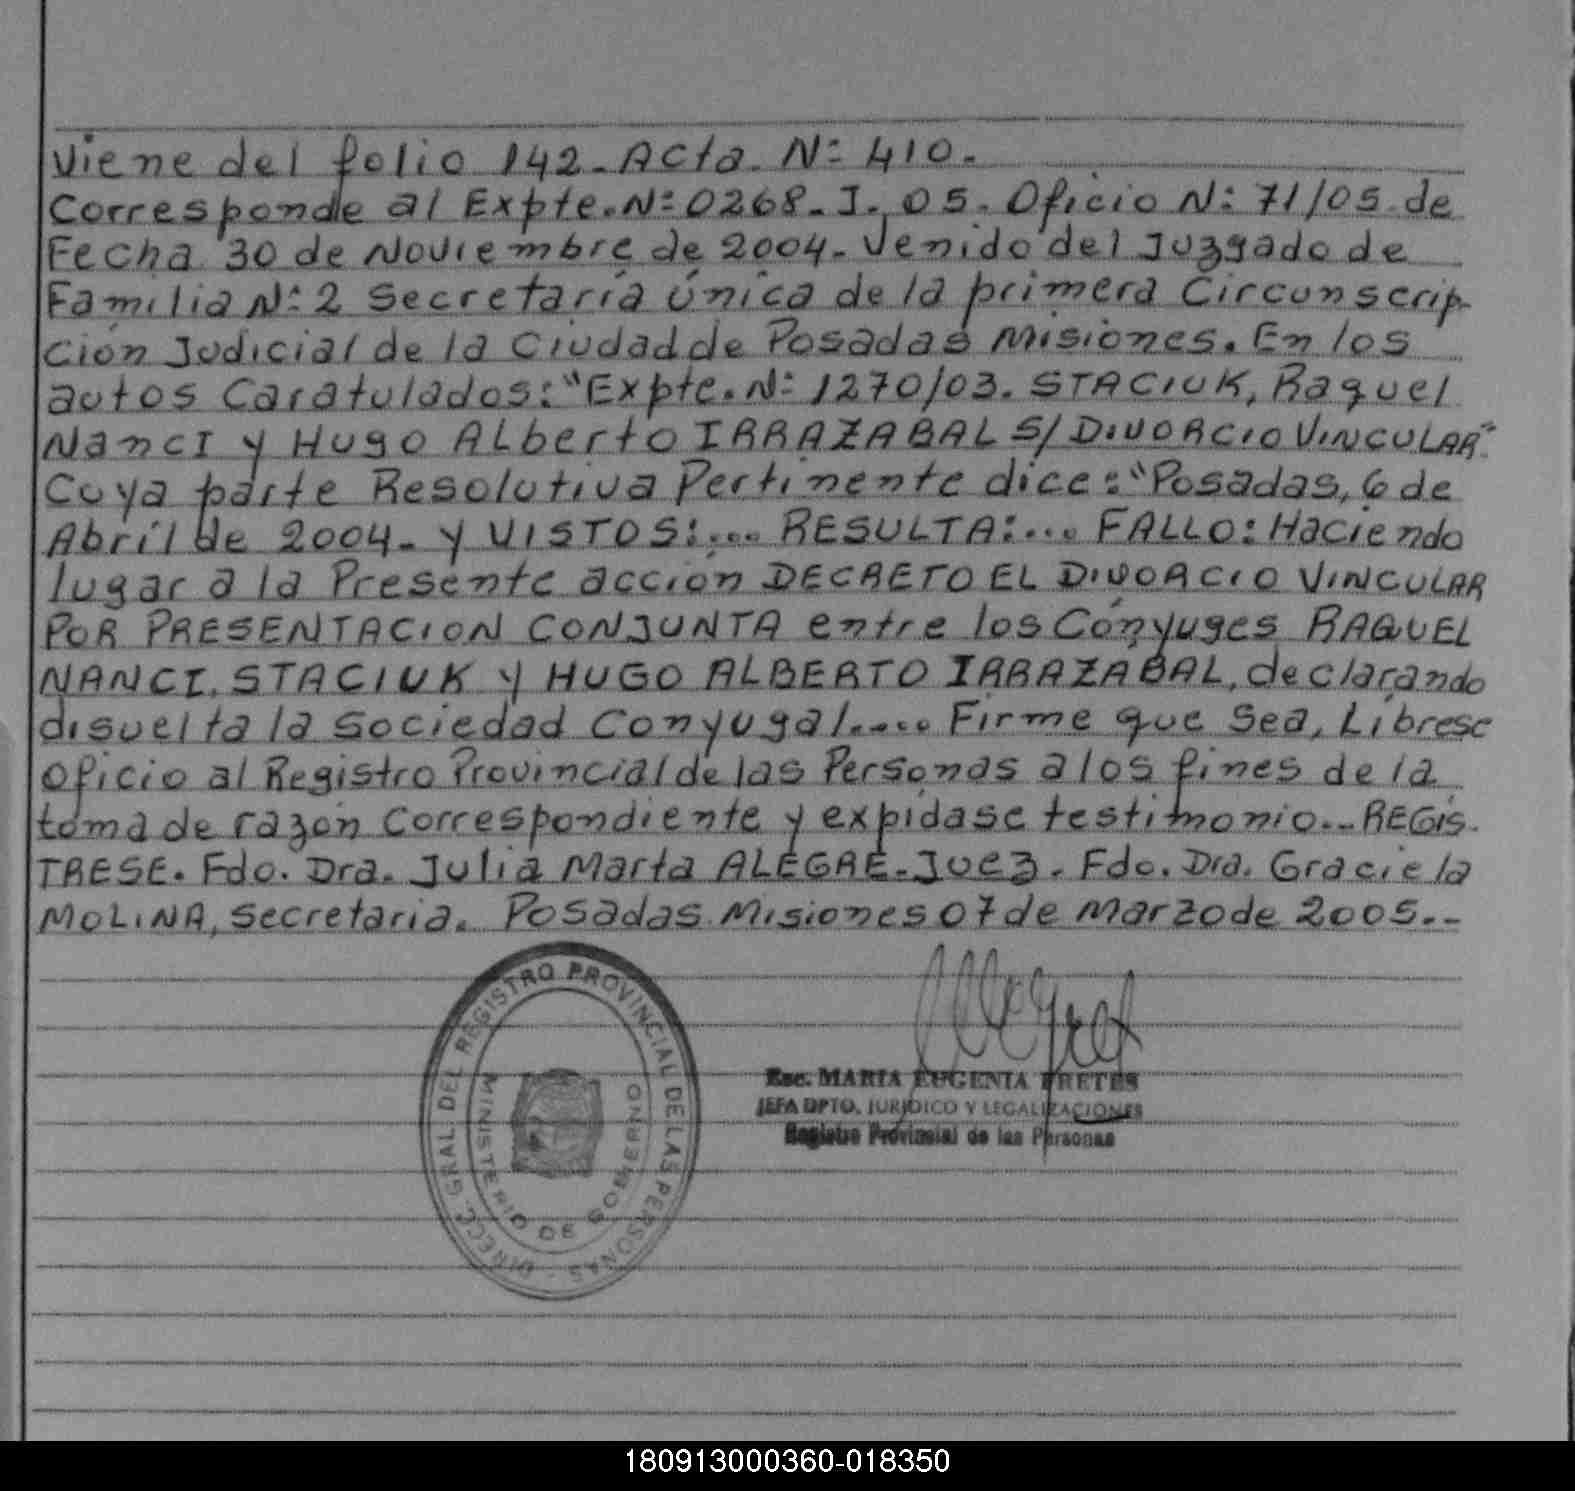 Viene del folio 142. Acta. Nº 410.
Corresponde al Expte. Nº 0268. J. 05. Oficio Nº 71/05 de
Fecha 30 de Noviembre de 2004. Venido del Juzgado de
Familia Nº 2 Secretaría única de la primera Circunscrip-
ción Judicial de la Ciudad de Posadas Misiones. En los
autos Caratulados: "Expte. Nº 1270/03. STACIUK, Raquel
NancI y Hugo ALberto IRRAZABAL S/ DIVORCIO VINCULAR".
Cuya parte Resolutiva Pertinente dice: "Posadas, 6 de
Abril de 2004. y VISTOS:... RESULTA:... FALLO: Haciendo
lugar a la Presente acción DECRETO EL DIVORCIO VINCULAR
POR PRESENTACION CONJUNTA entre los Cónyuges RAQUEL
NANCI. STACIUK y HUGO ALBERTO IRRAZABAL, declarando
disuelta la Sociedad Conyugal..... Firme que Sea, Líbrese
Oficio al Registro Provincial de las Personas a los fines de la
toma de razón Correspondiente y expídase testimonio... REGIS-
TRESE. Fdo. Dra. Julia Marta ALEGRE. Juez. Fdo. Dra. Graciela
MOLINA, Secretaria. Posadas Misiones 07 de Marzo de 2005..-
DIRECC. GRAL DEL REGISTRO PROVINCIAL DE LAS PERSONAS
MINISTERIO DE GOBIERNO
Esc. MARIA EUGENIA FRETES
JEFA DPTO. JURIDICO Y LEGALIZACIONES
Registro Provincial de las Personas
180913000360-018350